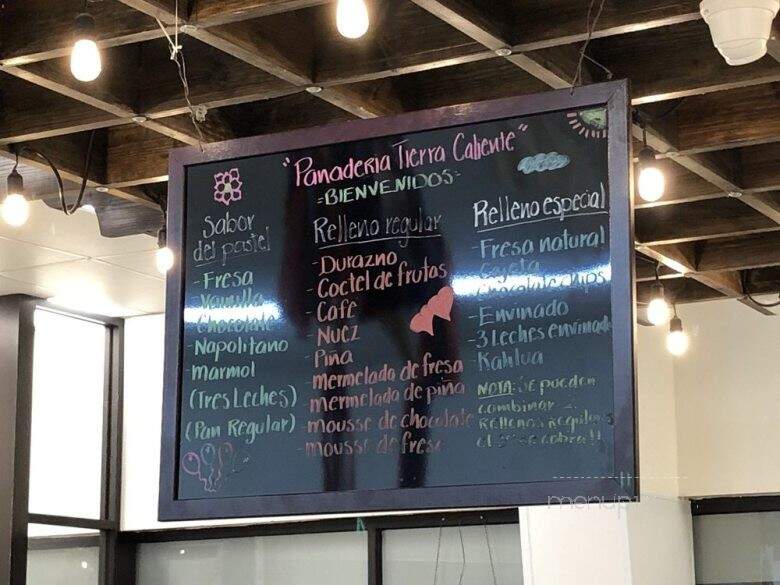 "Panaderia Tierra Caliente"
=BIENVENIDOS=
Sabor
del pastel
-Fresa
-Vainilla
-Chocolate
-Napolitano
-Marmol
(Tres Leches)
(Pan Regular)
Relleno regular
-Durazno
-Coctel de frutas
-Cafe
-Nuez
-Piña
-mermelada de fresa
-mermelada de piña
-mousse de chocolate
-mousse de fresa
Relleno especial
-Fresa natural
-Cajeta
-chocolate chips
-Envinado
-3 Leches envinado
-Kahlua
NOTA: Se pueden
combinar 2
Rellenos Regulares
cobra!!
menup